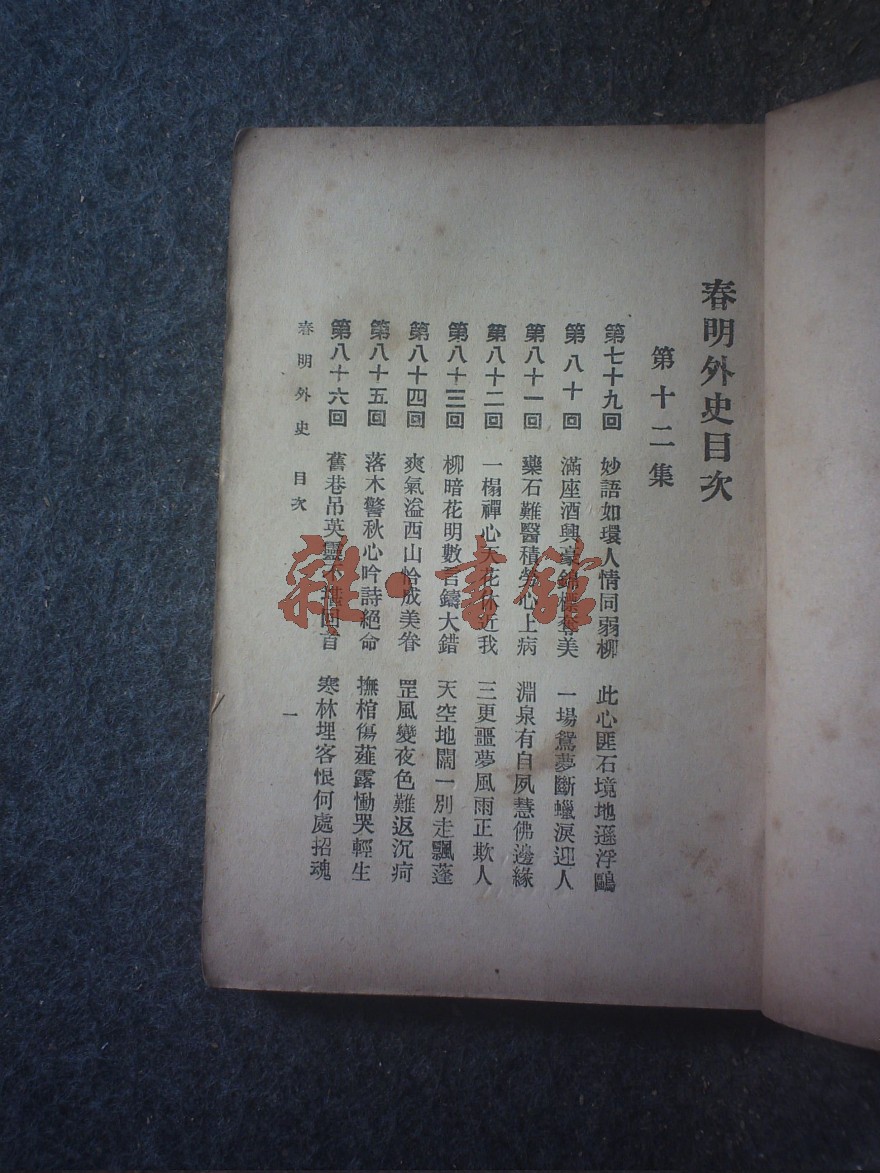 春明外史目次
第十二集
第七十九回 妙語如環人情同弱柳 此心匪石境地遜浮鷗
第八十回 滿座酒興豪錦標奪美 一場鴛夢斷蠟淚迎人
第八十一回 藥石難醫積勞心上病 淵泉有自夙慧佛邊緣
第八十二回 一榻禪心天花休近我 三更噩夢風雨正欺人
第八十三回 柳暗花明數言鑄大錯 天空地闊一別走飄蓬
第八十四回 爽氣溢西山恰成美眷 罡風變夜色難返沉疴
第八十五回 落木警秋心吟詩絕命 撫棺傷薤露慟哭輕生
第八十六回 舊巷吊英靈不堪回首 寒林埋客恨何處招魂
春明外史 目次 一
雜·書館